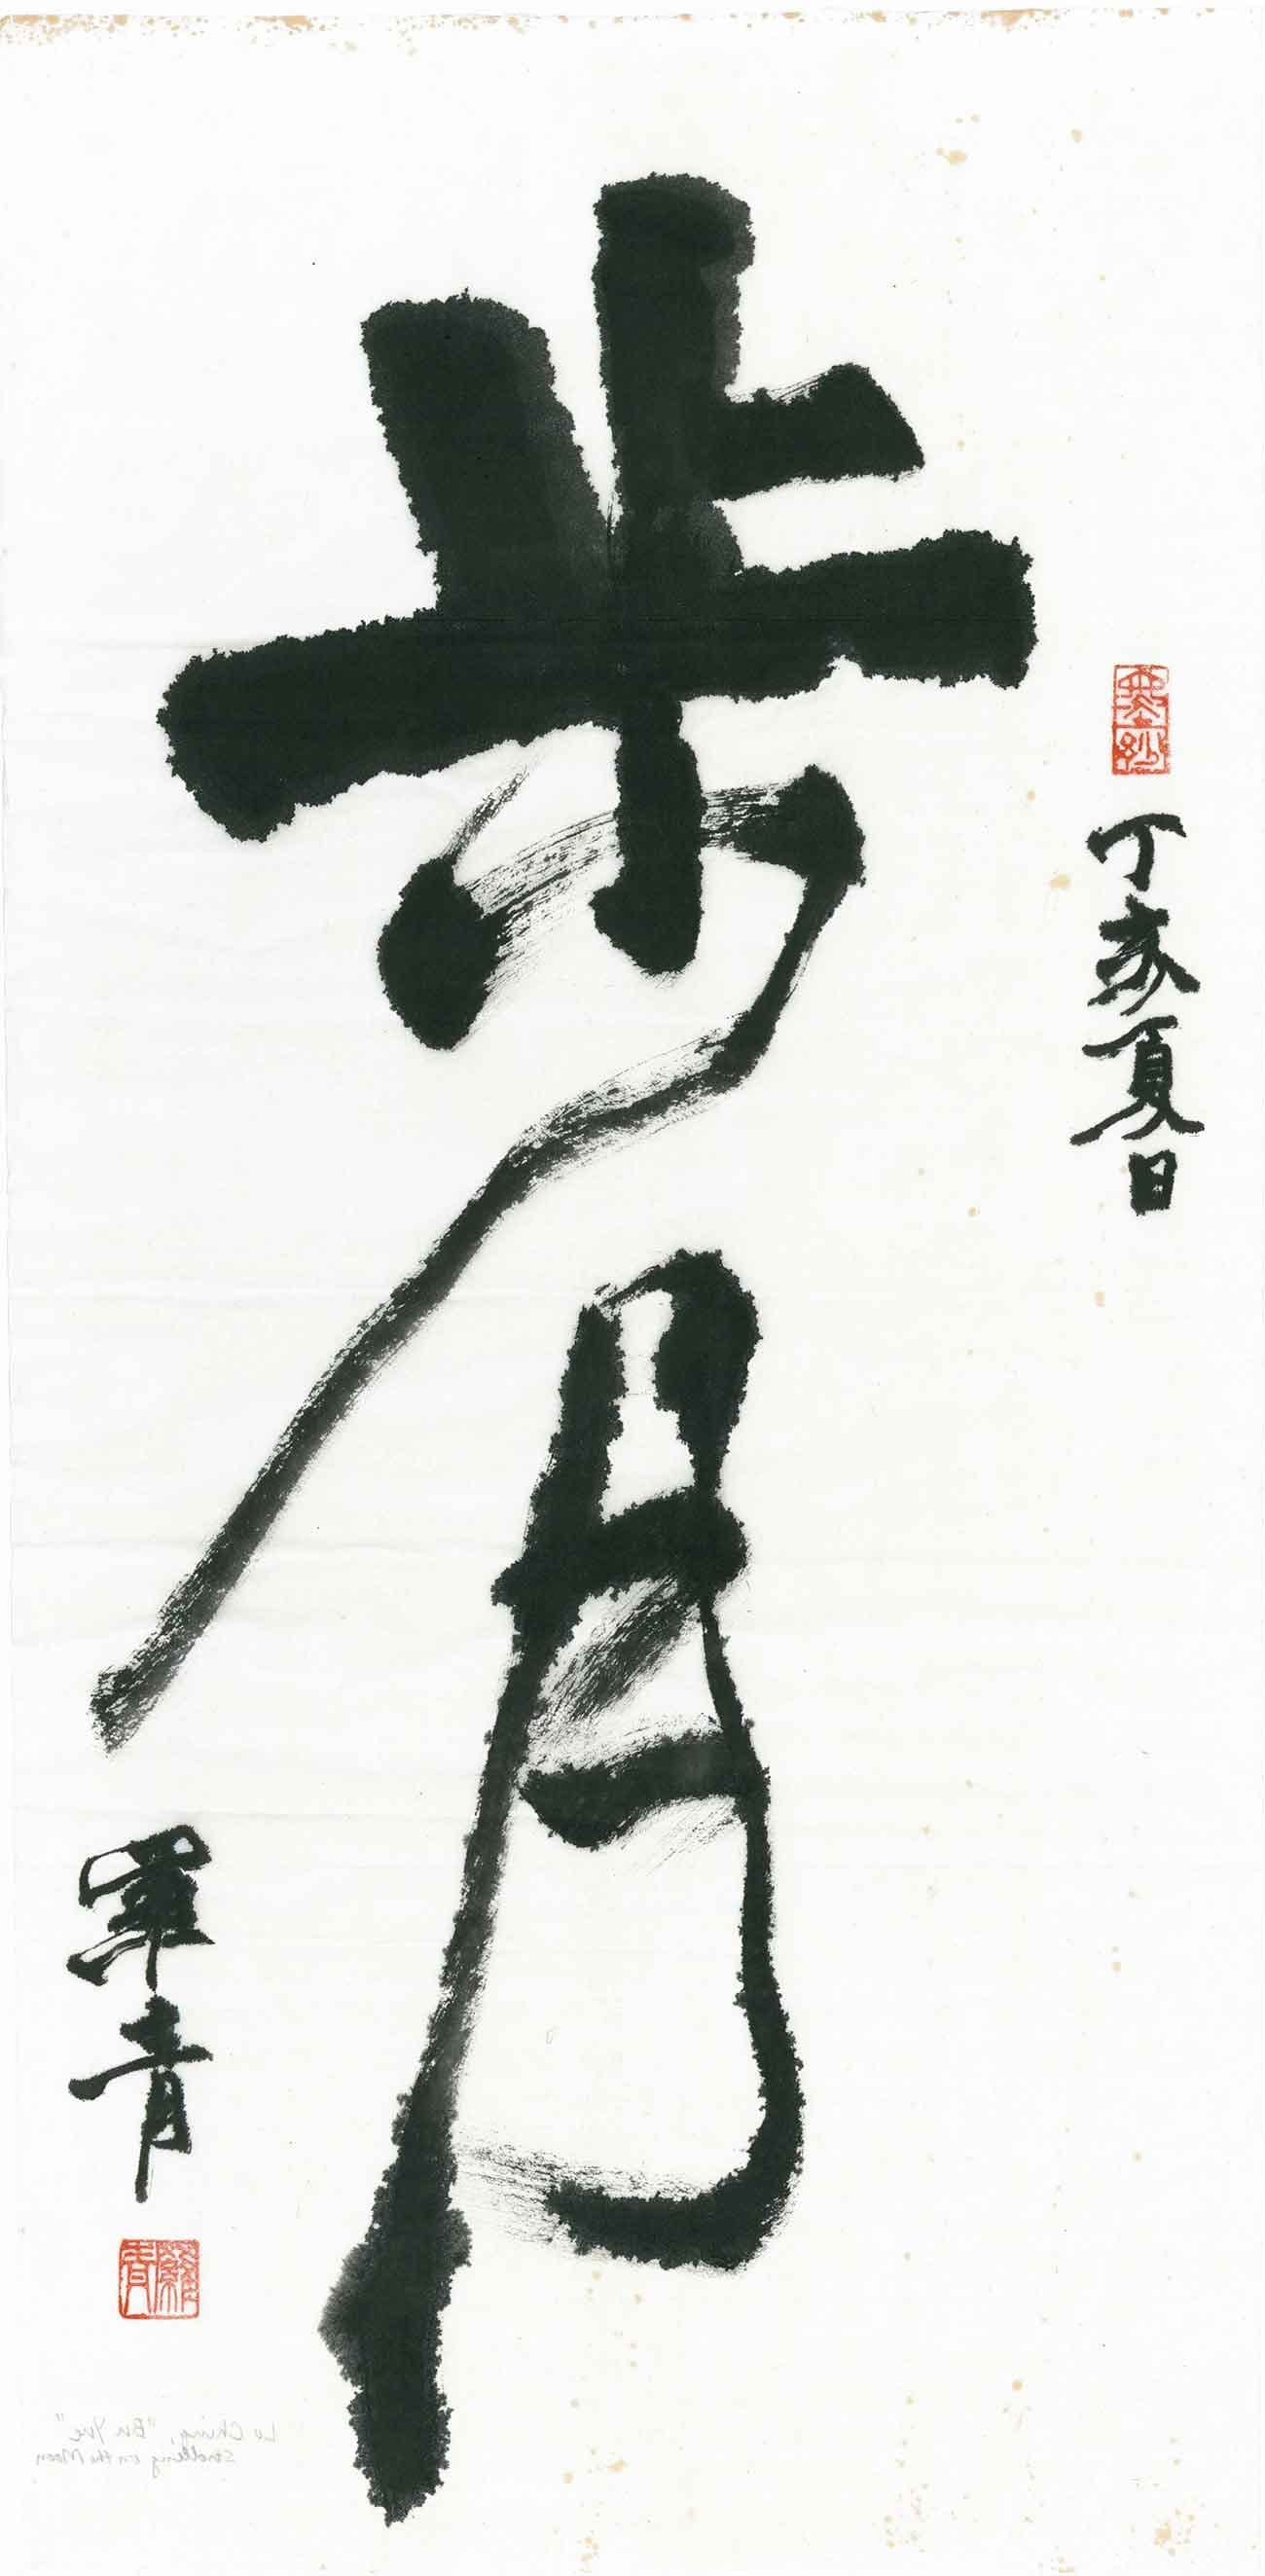 丁亥夏日
步月
羅青
羅青
Lo Ching, "Bu Yue"
Strolling on the Moon